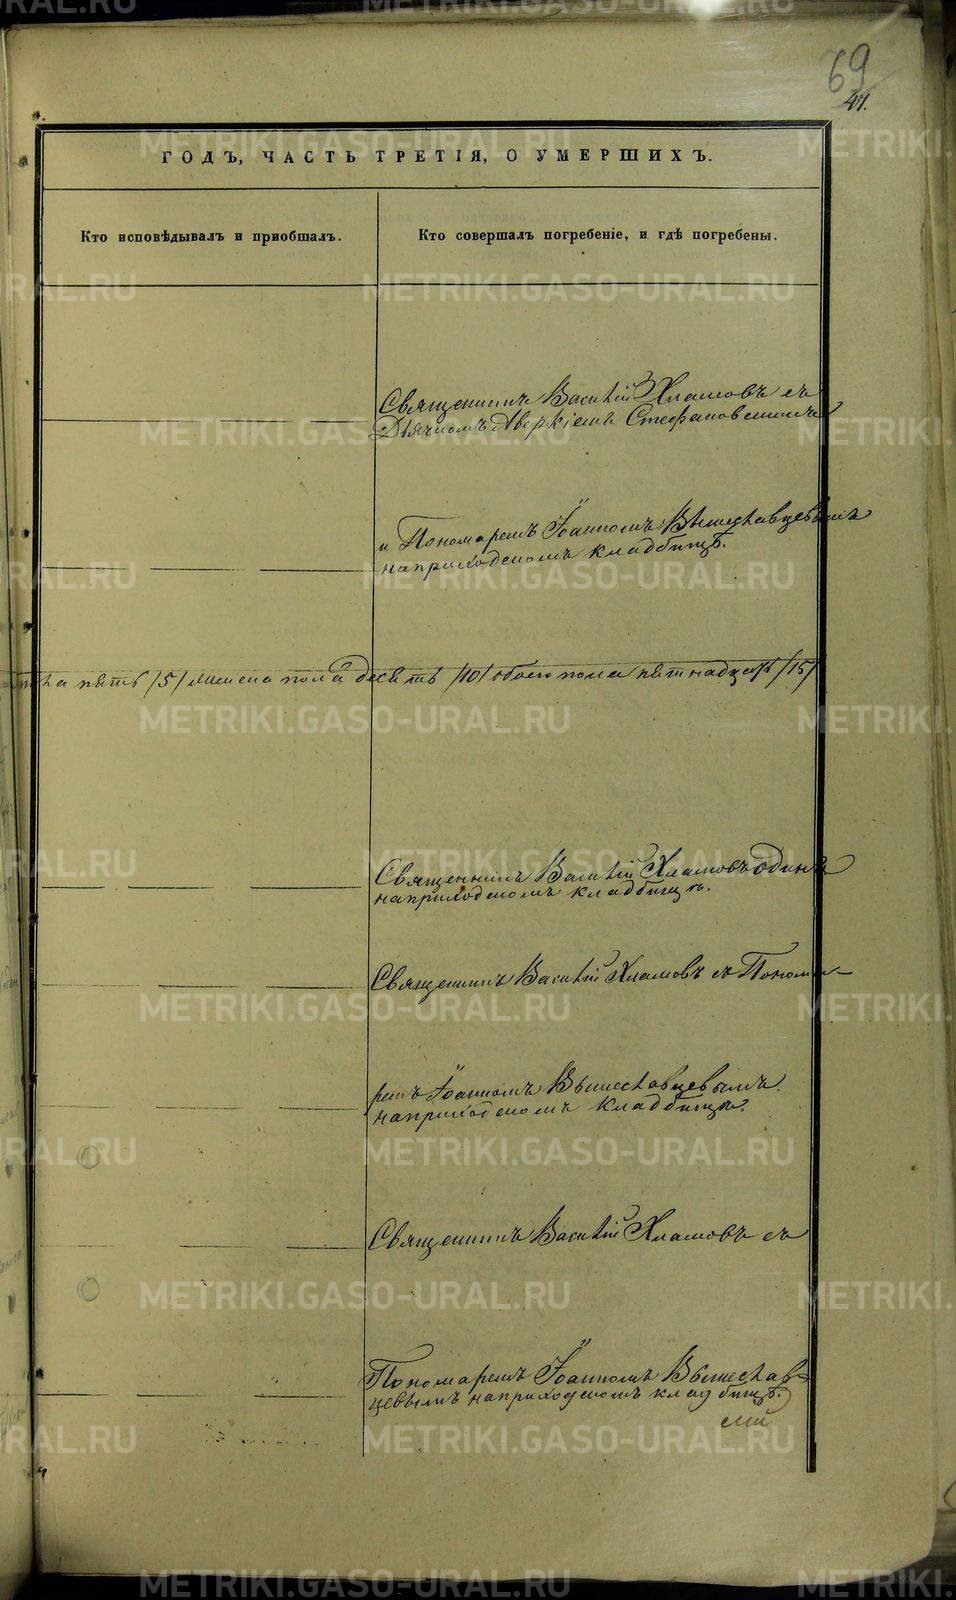 69
41.
ГОДЪ, ЧАСТЬ ТРЕТІЯ, О УМЕРШИХЪ.
Кто исповѣдывалъ и приобщалъ.
Кто совершалъ погребеніе, и гдѣ погребены.
Священникъ Василій Хламовъ съ
Дьячкомъ Аверкіемъ Стефановскимъ
и Пономаремъ Іоанномъ Вышеславцевымъ
на приходскомъ кладбищѣ.
пола пять /5/ женска пола десять /10/ обоего пола пятнадцать /15/
Священникъ Василій Хламовъ одинъ
на приходскомъ кладбищѣ.
Священникъ Василій Хламовъ съ Понома-
ремъ Іоанномъ Вышеславцевымъ
на приходскомъ кладбищѣ.
Священникъ Василій Хламовъ съ
Пономаремъ Іоанномъ Вышеслав-
цевымъ на приходскомъ кладбищѣ.
METRIKI.GASO-URAL.RU